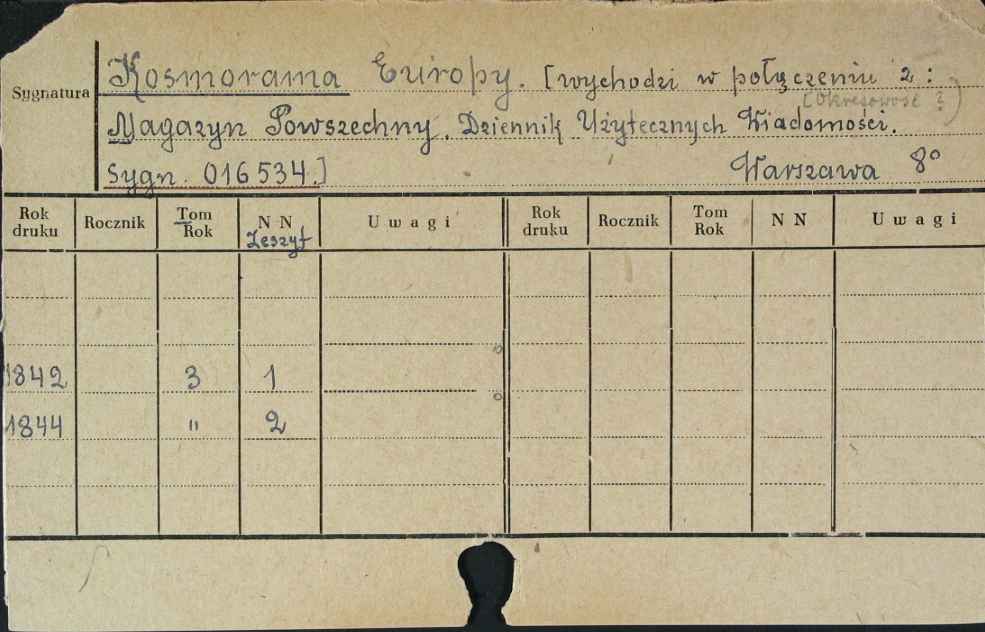 Sygnatura
Kosmorama Europy. [wychodzi w połączeniu z:
[Okresowość ? )
Magazyn Powszechny. Dziennik Użytecznych Wiadomości.
Sygn. 016534.] Warszawa 8°
Rok druku Rocznik Tom Rok N N Zeszyt Uwagi Rok druku Rocznik Tom Rok N N Uwagi
1842 3 1
1844 " 2